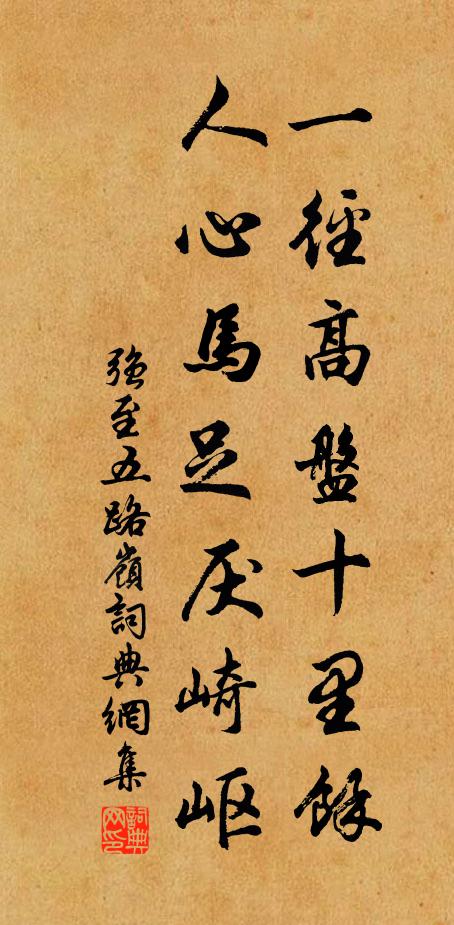 一徑高盤十里餘
人心馬足厌崎岖
强至五路嶺詞典網集
詞典网印